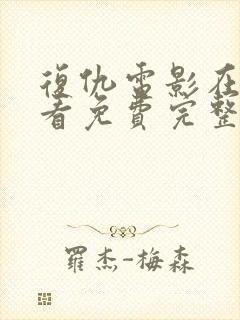 復仇電影在
看免費完整
羅杰-梅森